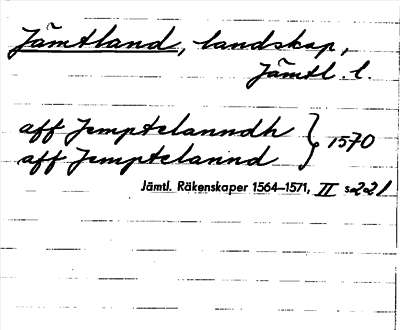 Jämtland, landskap,
Jämtl. l.
aff Jemptelanndh } 1570
aff Jemptelannd
Jämtl. Räkenskaper 1564–1571, II s 221